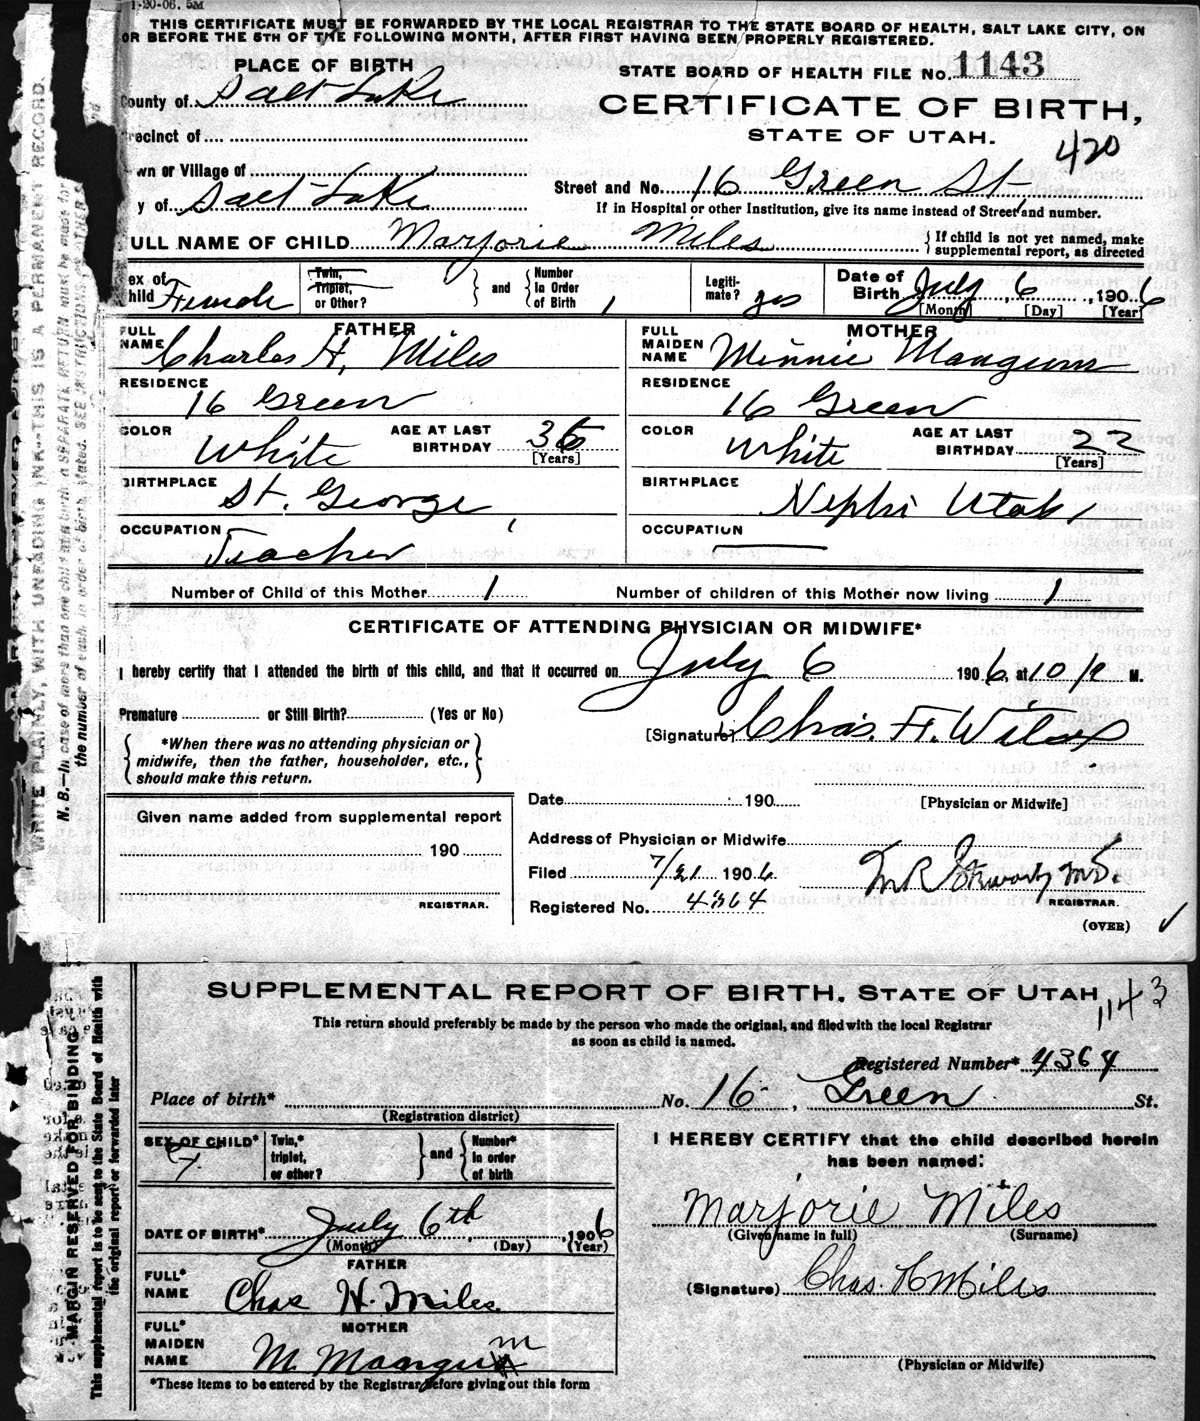 1-20-06. 5M
THIS CERTIFICATE MUST BE FORWARDED BY THE LOCAL REGISTRAR TO THE STATE BOARD OF HEALTH, SALT LAKE CITY, ON
OR BEFORE THE 5TH OF THE FOLLOWING MONTH, AFTER FIRST HAVING BEEN PROPERLY REGISTERED.
PLACE OF BIRTH
STATE BOARD OF HEALTH FILE No. 1143
County of Salt Lake
CERTIFICATE OF BIRTH,
STATE OF UTAH.
recinct of
420
wn or Village of
Street and No. 16 Green St
y of Salt Lake
If in Hospital or other Institution, give its name instead of Street and number.
ULL NAME OF CHILD Marjorie Miles
If child is not yet named, make
supplemental report, as directed
ex of
hild Female
Twin,
Triplet,
or Other?
and
Number
In Order
of Birth 1
Legiti-
mate? yes
Date of
Birth July 6, 1906
[Month] [Day] [Year]
FATHER
FULL
NAME Charles H. Miles
MOTHER
FULL
MAIDEN
NAME Minnie Mangum
RESIDENCE
16 Green
RESIDENCE
16 Green
COLOR White
AGE AT LAST
BIRTHDAY
[Years]
COLOR White
AGE AT LAST
BIRTHDAY 22
[Years]
BIRTHPLACE St. George,
BIRTHPLACE Nephi Utah
OCCUPATION
Teacher
OCCUPATION
Number of Child of this Mother 1
Number of children of this Mother now living 1
CERTIFICATE OF ATTENDING PHYSICIAN OR MIDWIFE*
I hereby certify that I attended the birth of this child, and that it occurred on July 6 1906, at 10 M.
Premature or Still Birth? (Yes or No)
[Signature] Chas. F. Wilcox
*When there was no attending physician or
midwife, then the father, householder, etc.,
should make this return.
Date 190
[Physician or Midwife]
Given name added from supplemental report
190
REGISTRAR.
Address of Physician or Midwife
Filed 7/21 1906
M.D.
REGISTRAR.
Registered No. 4364
(OVER)
WRITE PLAINLY, WITH UNFADING INK--THIS IS A PERMANENT RECORD.
N. B.--In case of more than one child at a birth, a SEPARATE RETURN must be made for
the number of each, in order of birth, stated. SEE INSTRUCTIONS
SUPPLEMENTAL REPORT OF BIRTH. STATE OF UTAH
1143
This return should preferably be made by the person who made the original, and filed with the local Registrar
as soon as child is named.
Registered Number* 4364
Place of birth* No. 16, Green St.
(Registration district)
SEX OF CHILD*
F.
Twin,*
triplet,
or other?
and
Number*
In order
of birth
I HEREBY CERTIFY that the child described herein
has been named:
Marjorie Miles
(Given name in full) (Surname)
DATE OF BIRTH* July 6th, 1906
(Month) (Day) (Year)
FATHER
FULL*
NAME Chas H. Miles.
(Signature) Chas. H Miles
MOTHER
FULL*
MAIDEN
NAME M. Mangum
(Physician or Midwife)
*These items to be entered by the Registrar before giving out this form
MARGIN RESERVED FOR BINDING
This supplemental report is to be sent to the State Board of Health with
the original report or forwarded later